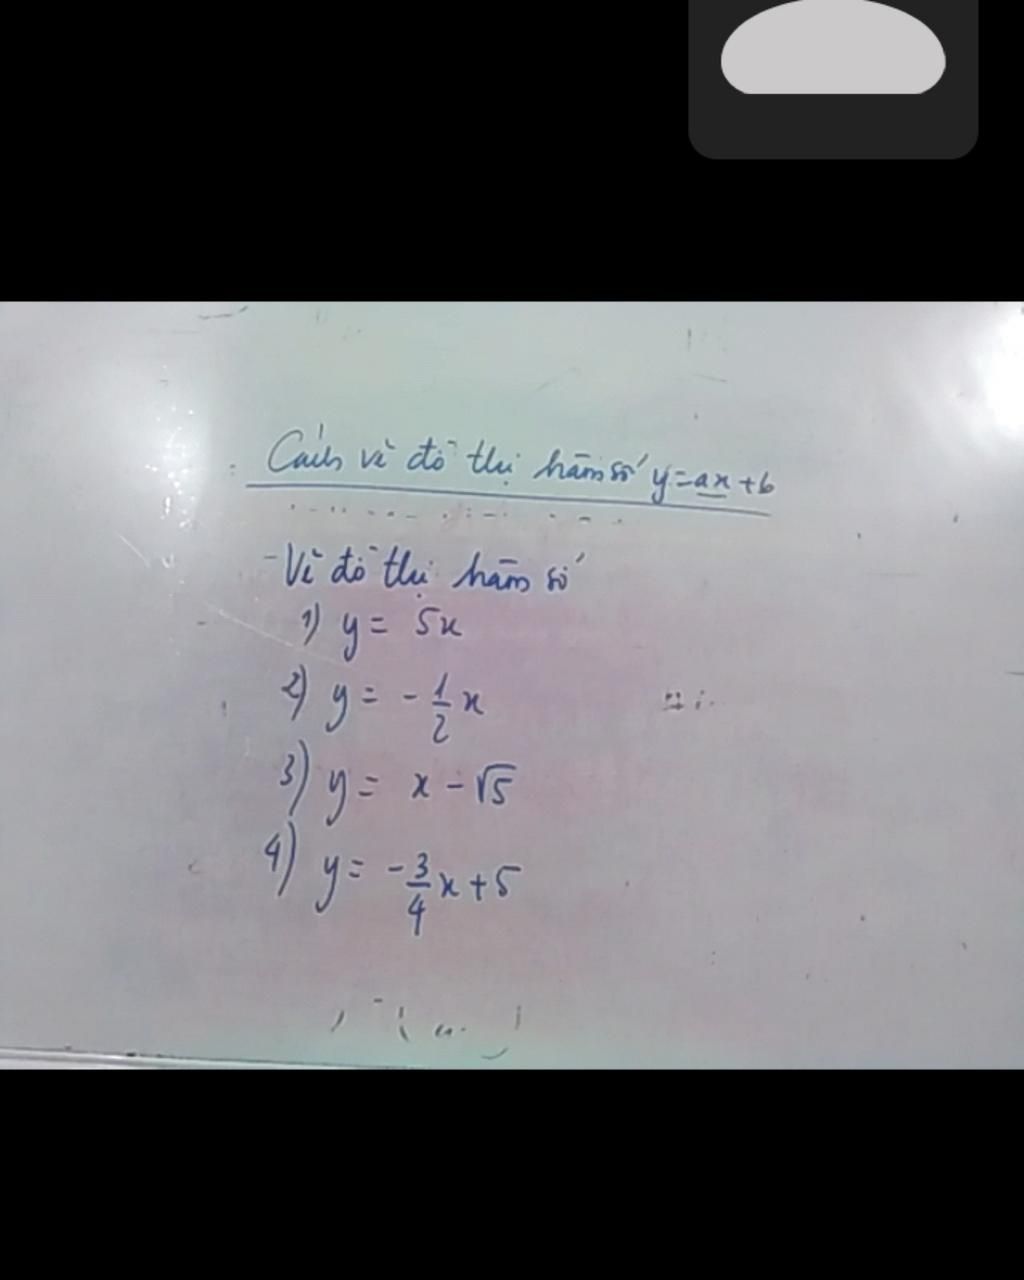 Cách vẽ đồ thị hàm số y=ax+b
- Vẽ đồ thị hàm số
1) y = 5x
2) y = -1/2 x
3) y = x - √5
4) y = -3/4 x + 5